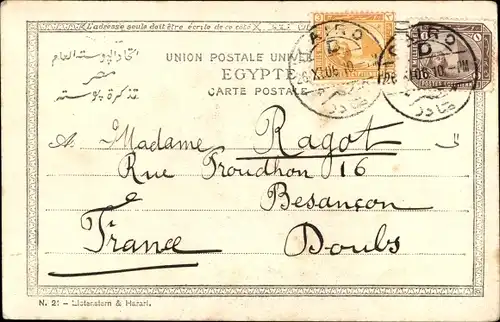 L'adresse seule doit être écrite de ce côté
UNION POSTALE UNIVE
EGYPTE
CARTE POSTALE
اتحاد البوسته العام
مصر
تذكرة بوسته
CAIRO
D
26 XI 06 10 PM
CAIRO
D
06 10 PM
A. Madame Ragot
Rue Proudhon 16
Besançon
Doubs
France
N. 21 – Lichtenstern & Harari.